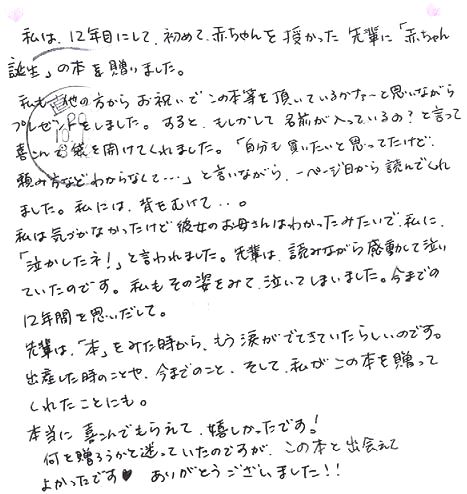 私は、12年目にして、初めて、赤ちゃんを授かった先輩に「赤ちゃん
誕生」の本を贈りました。
私も、他の方からお祝いでこの本等を頂いているかなぁーと思いながら
プレゼントをしました。すると、もしかして名前が入っているの?と言って
喜こんで袋を開けてくれました。「自分も買いたいと思ってたけど、
頼み方などわからなくて・・・」と言いながら、一ページ目から読んでくれ
ました。私には、背をむけて・・。
私は気づかなかったけど彼女のお母さんはわかったみたいで、私に、
「泣かしたネ!」と言われました。先輩は、読みながら感動して泣い
ていたのです。私もその姿をみて、泣いてしまいました。今までの
12年間を思いだして。
先輩は、「本」をみた時から、もう涙がでてきていたらしいのです。
出産した時のことや、今までのこと、そして、私がこの本を贈って
くれたことにも。
本当に喜こんでもらえて、嬉しかったです!
何を贈ろうかと迷っていたのですが、この本と出会えて
よかったです♥ ありがとうございました!!